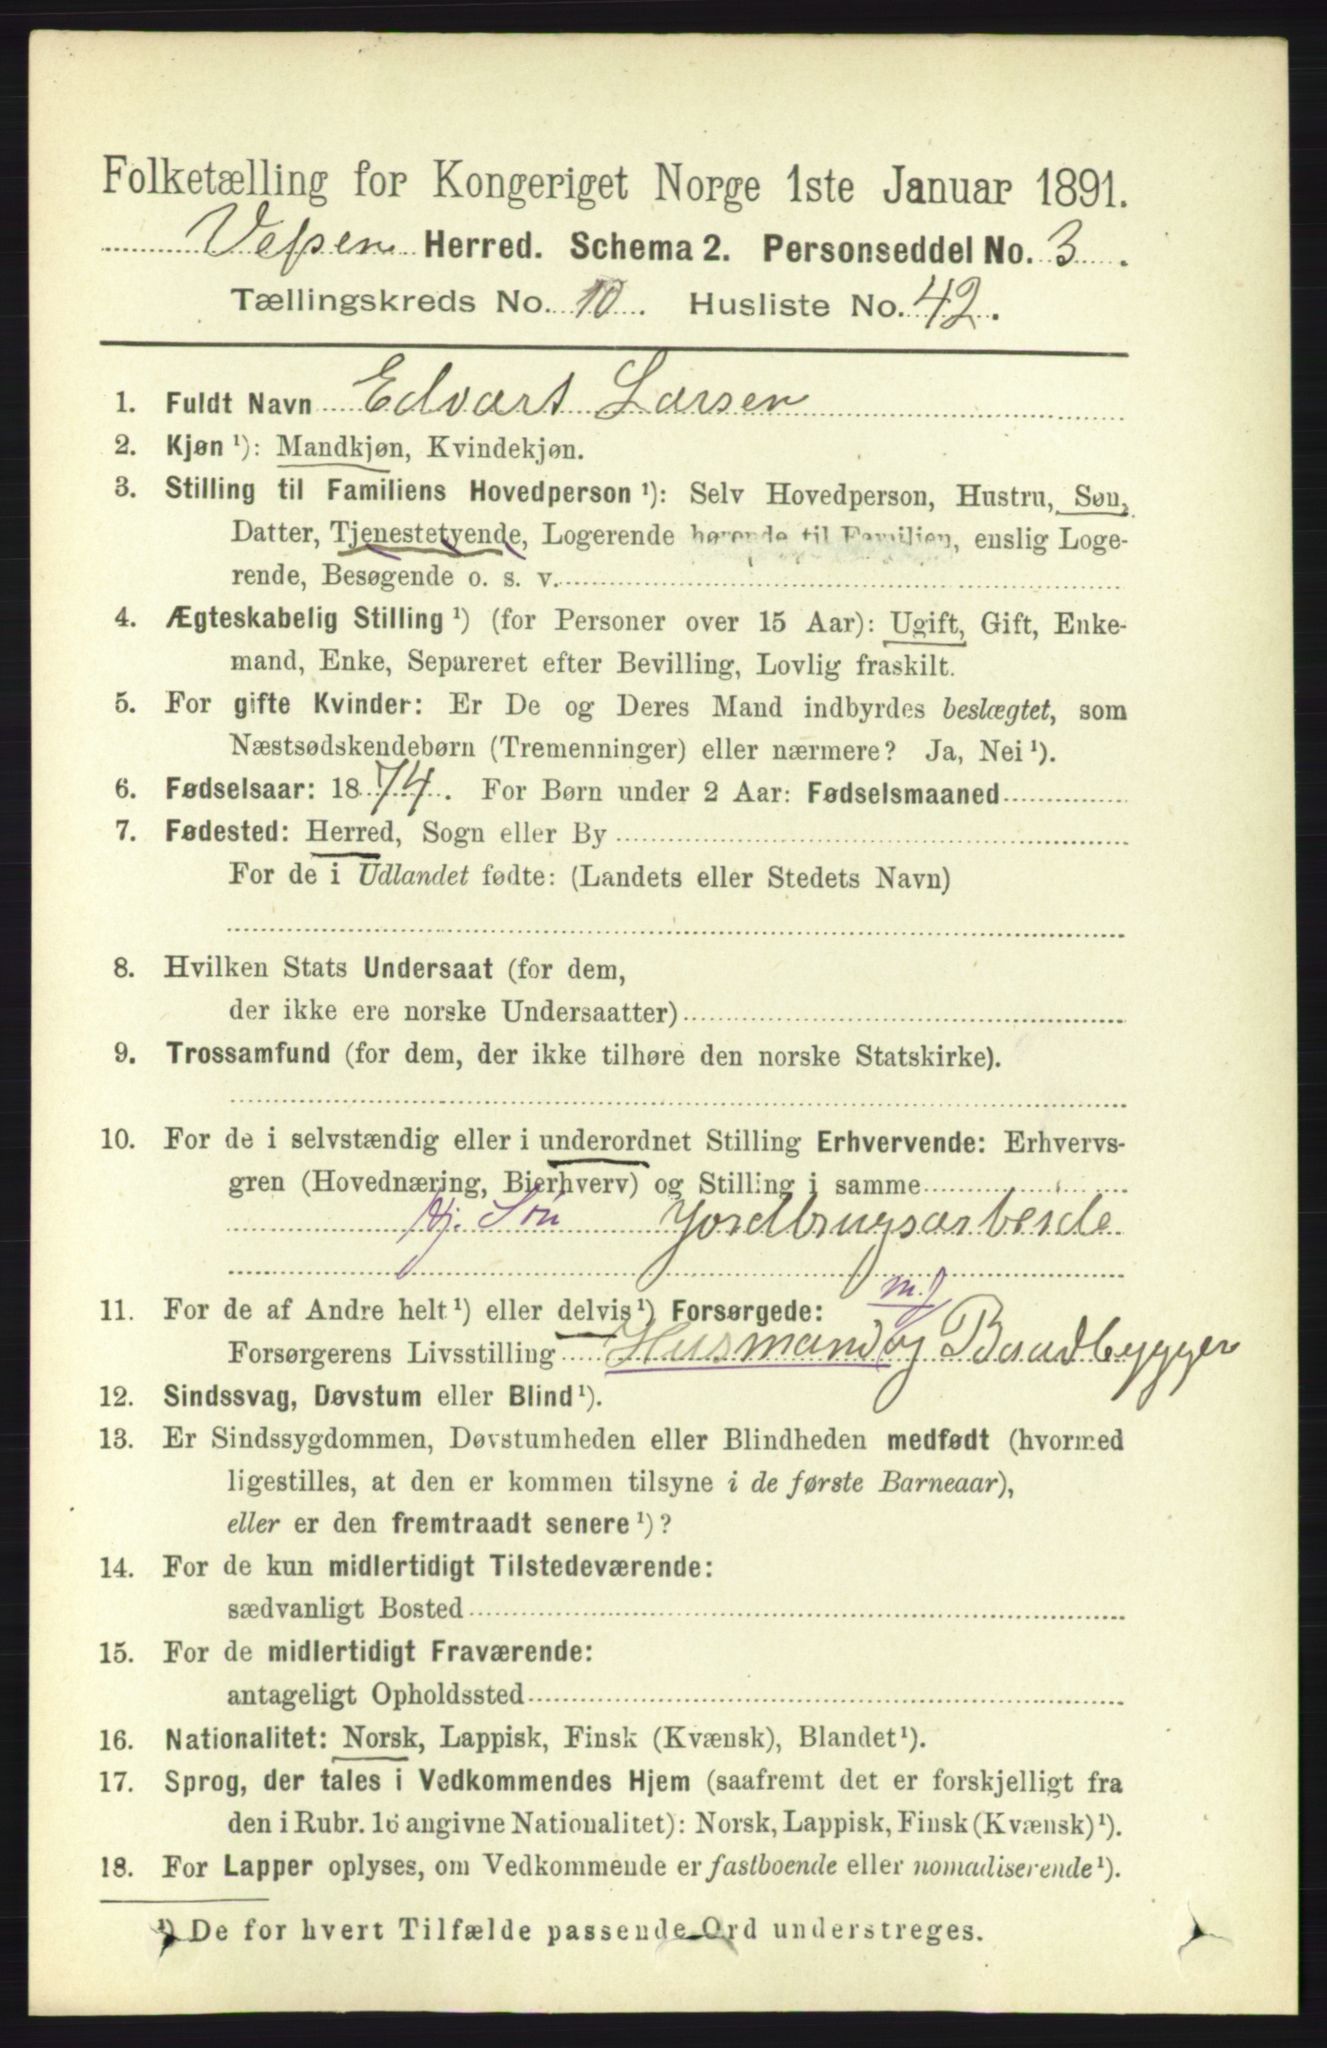 Folketælling for Kongeriget Norge 1ste Januar 1891.
Vefsen Herred. Schema 2. Personseddel No. 3.
Tællingskreds No. 10. Husliste No. 42.
1. Fuldt Navn Edvart Larsen
2. Kjøn ¹): Mandkjøn, Kvindekjøn.
3. Stilling til Familiens Hovedperson ¹): Selv Hovedperson, Hustru, Søn,
Datter, Tjenestetyende, Logerende hørende til Familien, enslig Loge-
rende, Besøgende o. s. v.
4. Ægteskabelig Stilling ¹) (for Personer over 15 Aar): Ugift, Gift, Enke-
mand, Enke, Separeret efter Bevilling, Lovlig fraskilt.
5. For gifte Kvinder: Er De og Deres Mand indbyrdes beslægtet, som
Næstsødskendebørn (Tremenninger) eller nærmere? Ja, Nei ¹).
6. Fødselsaar: 1874. For Børn under 2 Aar: Fødselsmaaned
7. Fødested: Herred, Sogn eller By
For de i Udlandet fødte: (Landets eller Stedets Navn)
8. Hvilken Stats Undersaat (for dem,
der ikke ere norske Undersaatter)
9. Trossamfund (for dem, der ikke tilhøre den norske Statskirke).
10. For de i selvstændig eller i underordnet Stilling Erhvervende: Erhvervs-
gren (Hovednæring, Bierhverv) og Stilling i samme
Hj. Søn Jordbrugsarbeide
m.J
11. For de af Andre helt ¹) eller delvis ¹) Forsørgede:
Forsørgerens Livsstilling Husmand og Baadbygger
12. Sindssvag, Døvstum eller Blind ¹).
13. Er Sindssygdommen, Døvstumheden eller Blindheden medfødt (hvormed
ligestilles, at den er kommen tilsyne i de første Barneaar),
eller er den fremtraadt senere ¹)?
14. For de kun midlertidigt Tilstedeværende:
sædvanligt Bosted
15. For de midlertidigt Fraværende:
antageligt Opholdssted
16. Nationalitet: Norsk, Lappisk, Finsk (Kvænsk), Blandet ¹).
17. Sprog, der tales i Vedkommendes Hjem (saafremt det er forskjelligt fra
den i Rubr. 16 angivne Nationalitet): Norsk, Lappisk, Finsk (Kvænsk) ¹).
18. For Lapper oplyses, om Vedkommende er fastboende eller nomadiserende ¹).
¹) De for hvert Tilfælde passende Ord understreges.